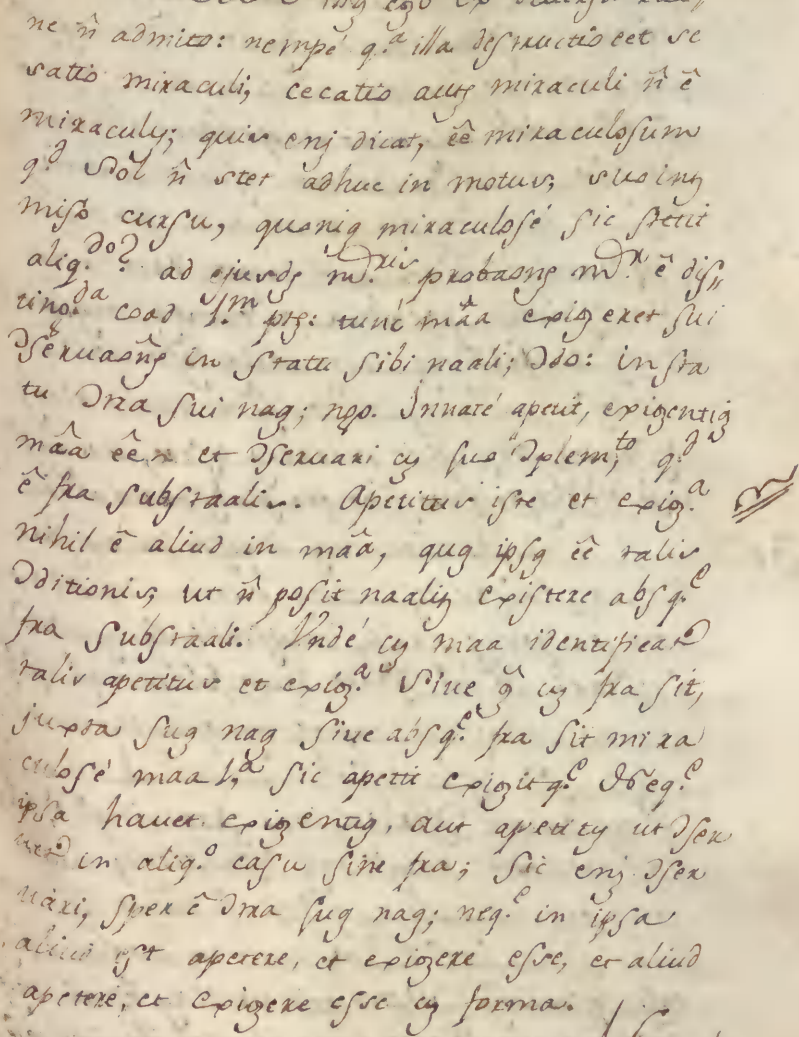 ne ñ admito: nempé q.ª illa destructio eet se
satio miraculi; cecatio autȝ miraculi ñ ẽ
miraculȝ; quis enj dicat, ẽẽ miraculosum
q.d Sol ñ stet adhuc in motus, suo inȝ
miso cursu, quoniȝ miraculosé sic stetit
aliq.do? ad ejusdȝ m.ris probaonȝ m.r ẽ dis
tinq.da coad 1.m ptȝ: tunc mãa exigeret sui
Ɔseruaonȝ in statu sibi naali; Ɔdo: in sta
tu Ɔtra sui naȝ; nȝo. Innaté apetit, exigentiȝ
mãa ẽẽ et Ɔseruari cȝ suo Ɔplem.to q.d
ẽ fra substaalis. Apetitus iste et exig.ª
nihil ẽ aliud in mãa, quȝ ipsȝ ẽẽ talis
Ɔditionis, ut ñ posit naaliȝ existere absq.e
fra substaali. Vndé cȝ maa identificat
talis apetitus et exig.ª Siue g̃ cȝ fra sit,
juxta suȝ naȝ siue absq.e fra sit mira
culosé maa 1.ª sic apetit exigitq.e neq.e
ipsa hauet exigentiȝ, aut apetitȝ ut Ɔser
in aliq.o casu sine fra; sic enj Ɔser
uari, sper ẽ Ɔtra suȝ naȝ; neq.e in ipsa
aliud est apetere, et exigere esse, et aliud
apeteré, et exigere esse cȝ forma.